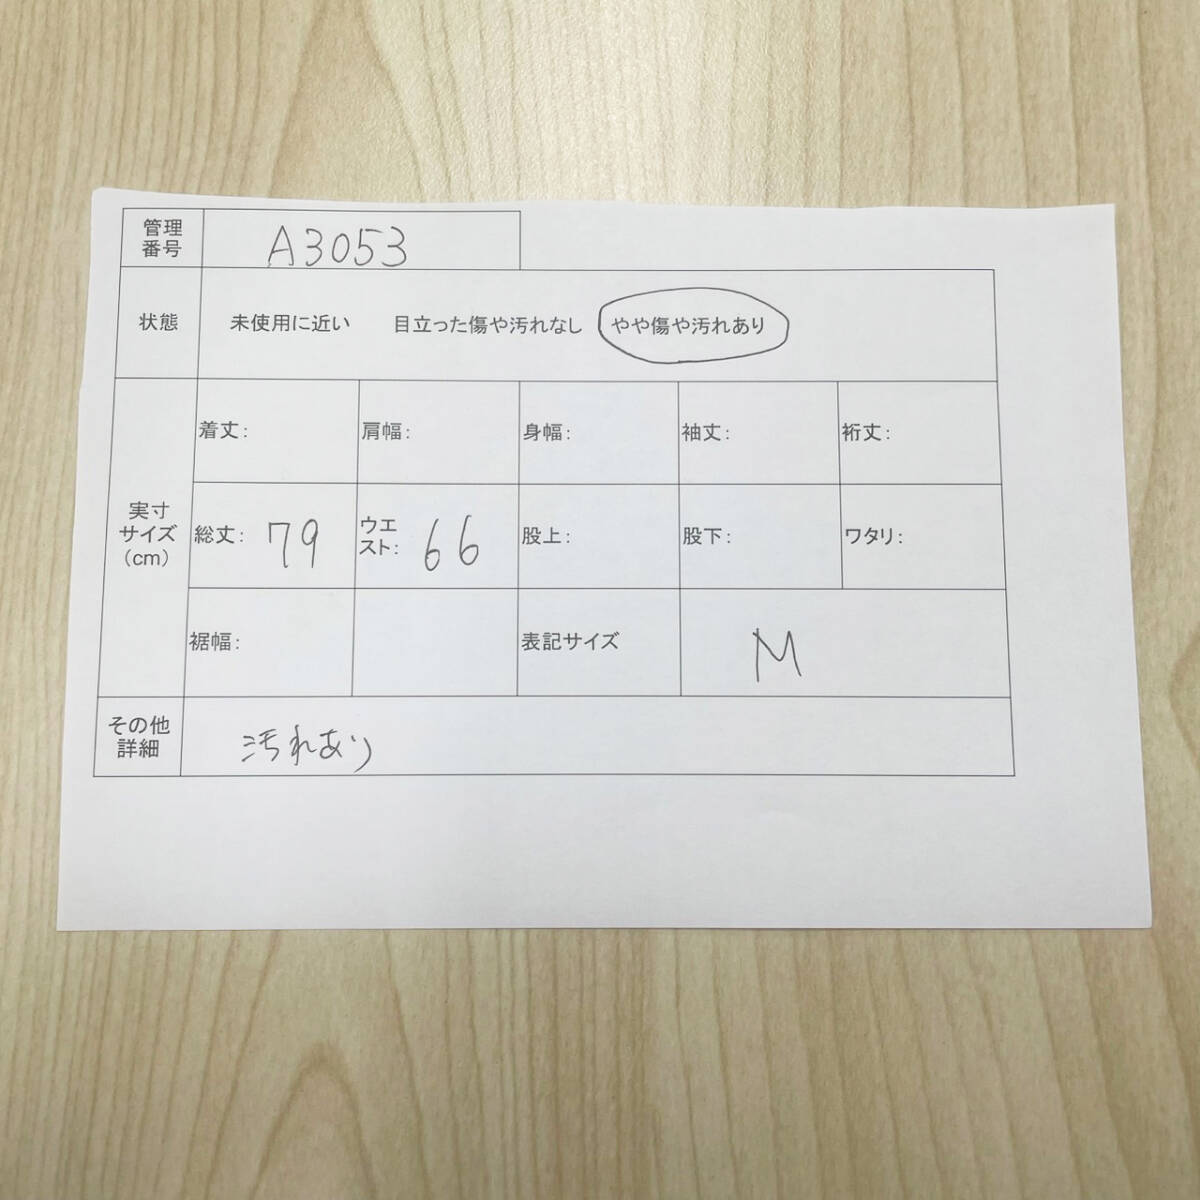 管理
番号
A3053
状態
未使用に近い 目立った傷や汚れなし やや傷や汚れあり
実寸
サイズ
(cm)
着丈: 肩幅: 身幅: 袖丈: 裄丈:
総丈: 79
ウエ
スト: 66
股上: 股下: ワタリ:
裾幅: 表記サイズ M
その他
詳細
汚れあり